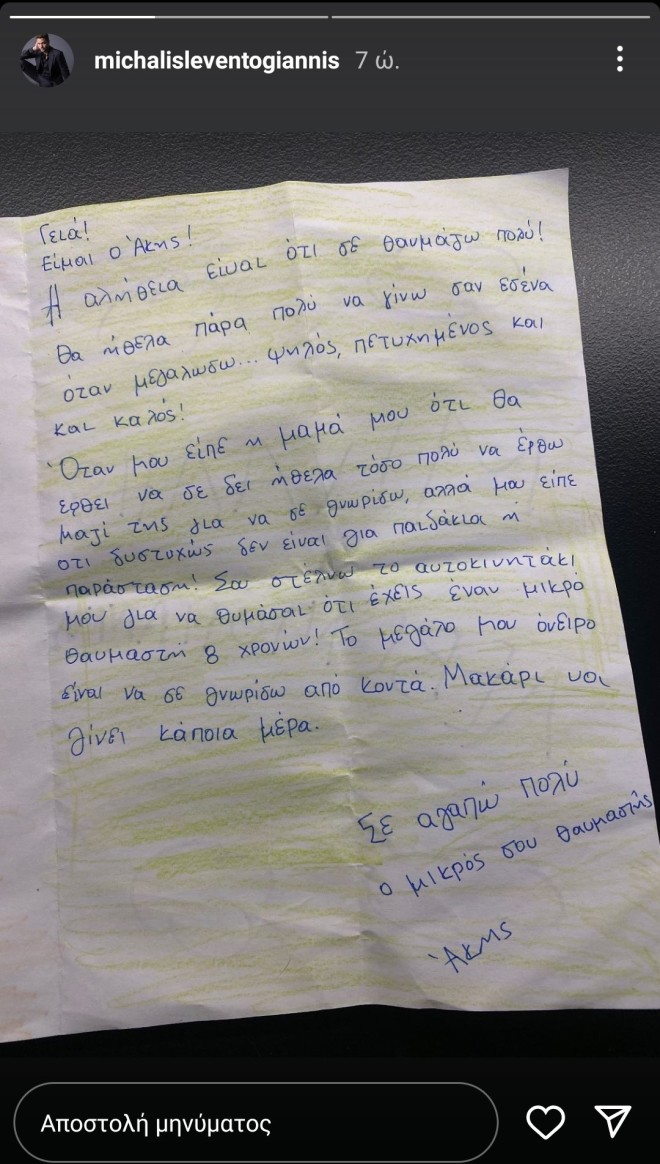 michalisleventogiannis 7 ώ.
Γειά!
Είμαι ο Άκης!
Η αλήθεια είναι ότι σε θαυμάζω πολύ!
Θα ήθελα πάρα πολύ να γίνω σαν εσένα
όταν μεγαλώσω... ψηλός, πετυχημένος και
και καλός!
Όταν μου είπε η μαμά μου ότι θα
ερθει να σε δει ήθελα τόσο πολύ να έρθω
μαζί της για να σε γνωρίσω, αλλά μου είπε
οτι δυστυχώς δεν είναι για παιδάκια η
παράσταση! Σου στέλνω το αυτοκινητάκι
μου για να θυμάσαι ότι έχεις έναν μικρό
θαυμαστή 8 χρονών! Το μεγάλο μου όνειρο
είναι να σε γνωρίσω από κοντά. Μακάρι να
γίνει κάποια μέρα.
Σε αγαπώ πολύ
ο μικρός σου θαυμαστής
Άκης
Αποστολή μηνύματος